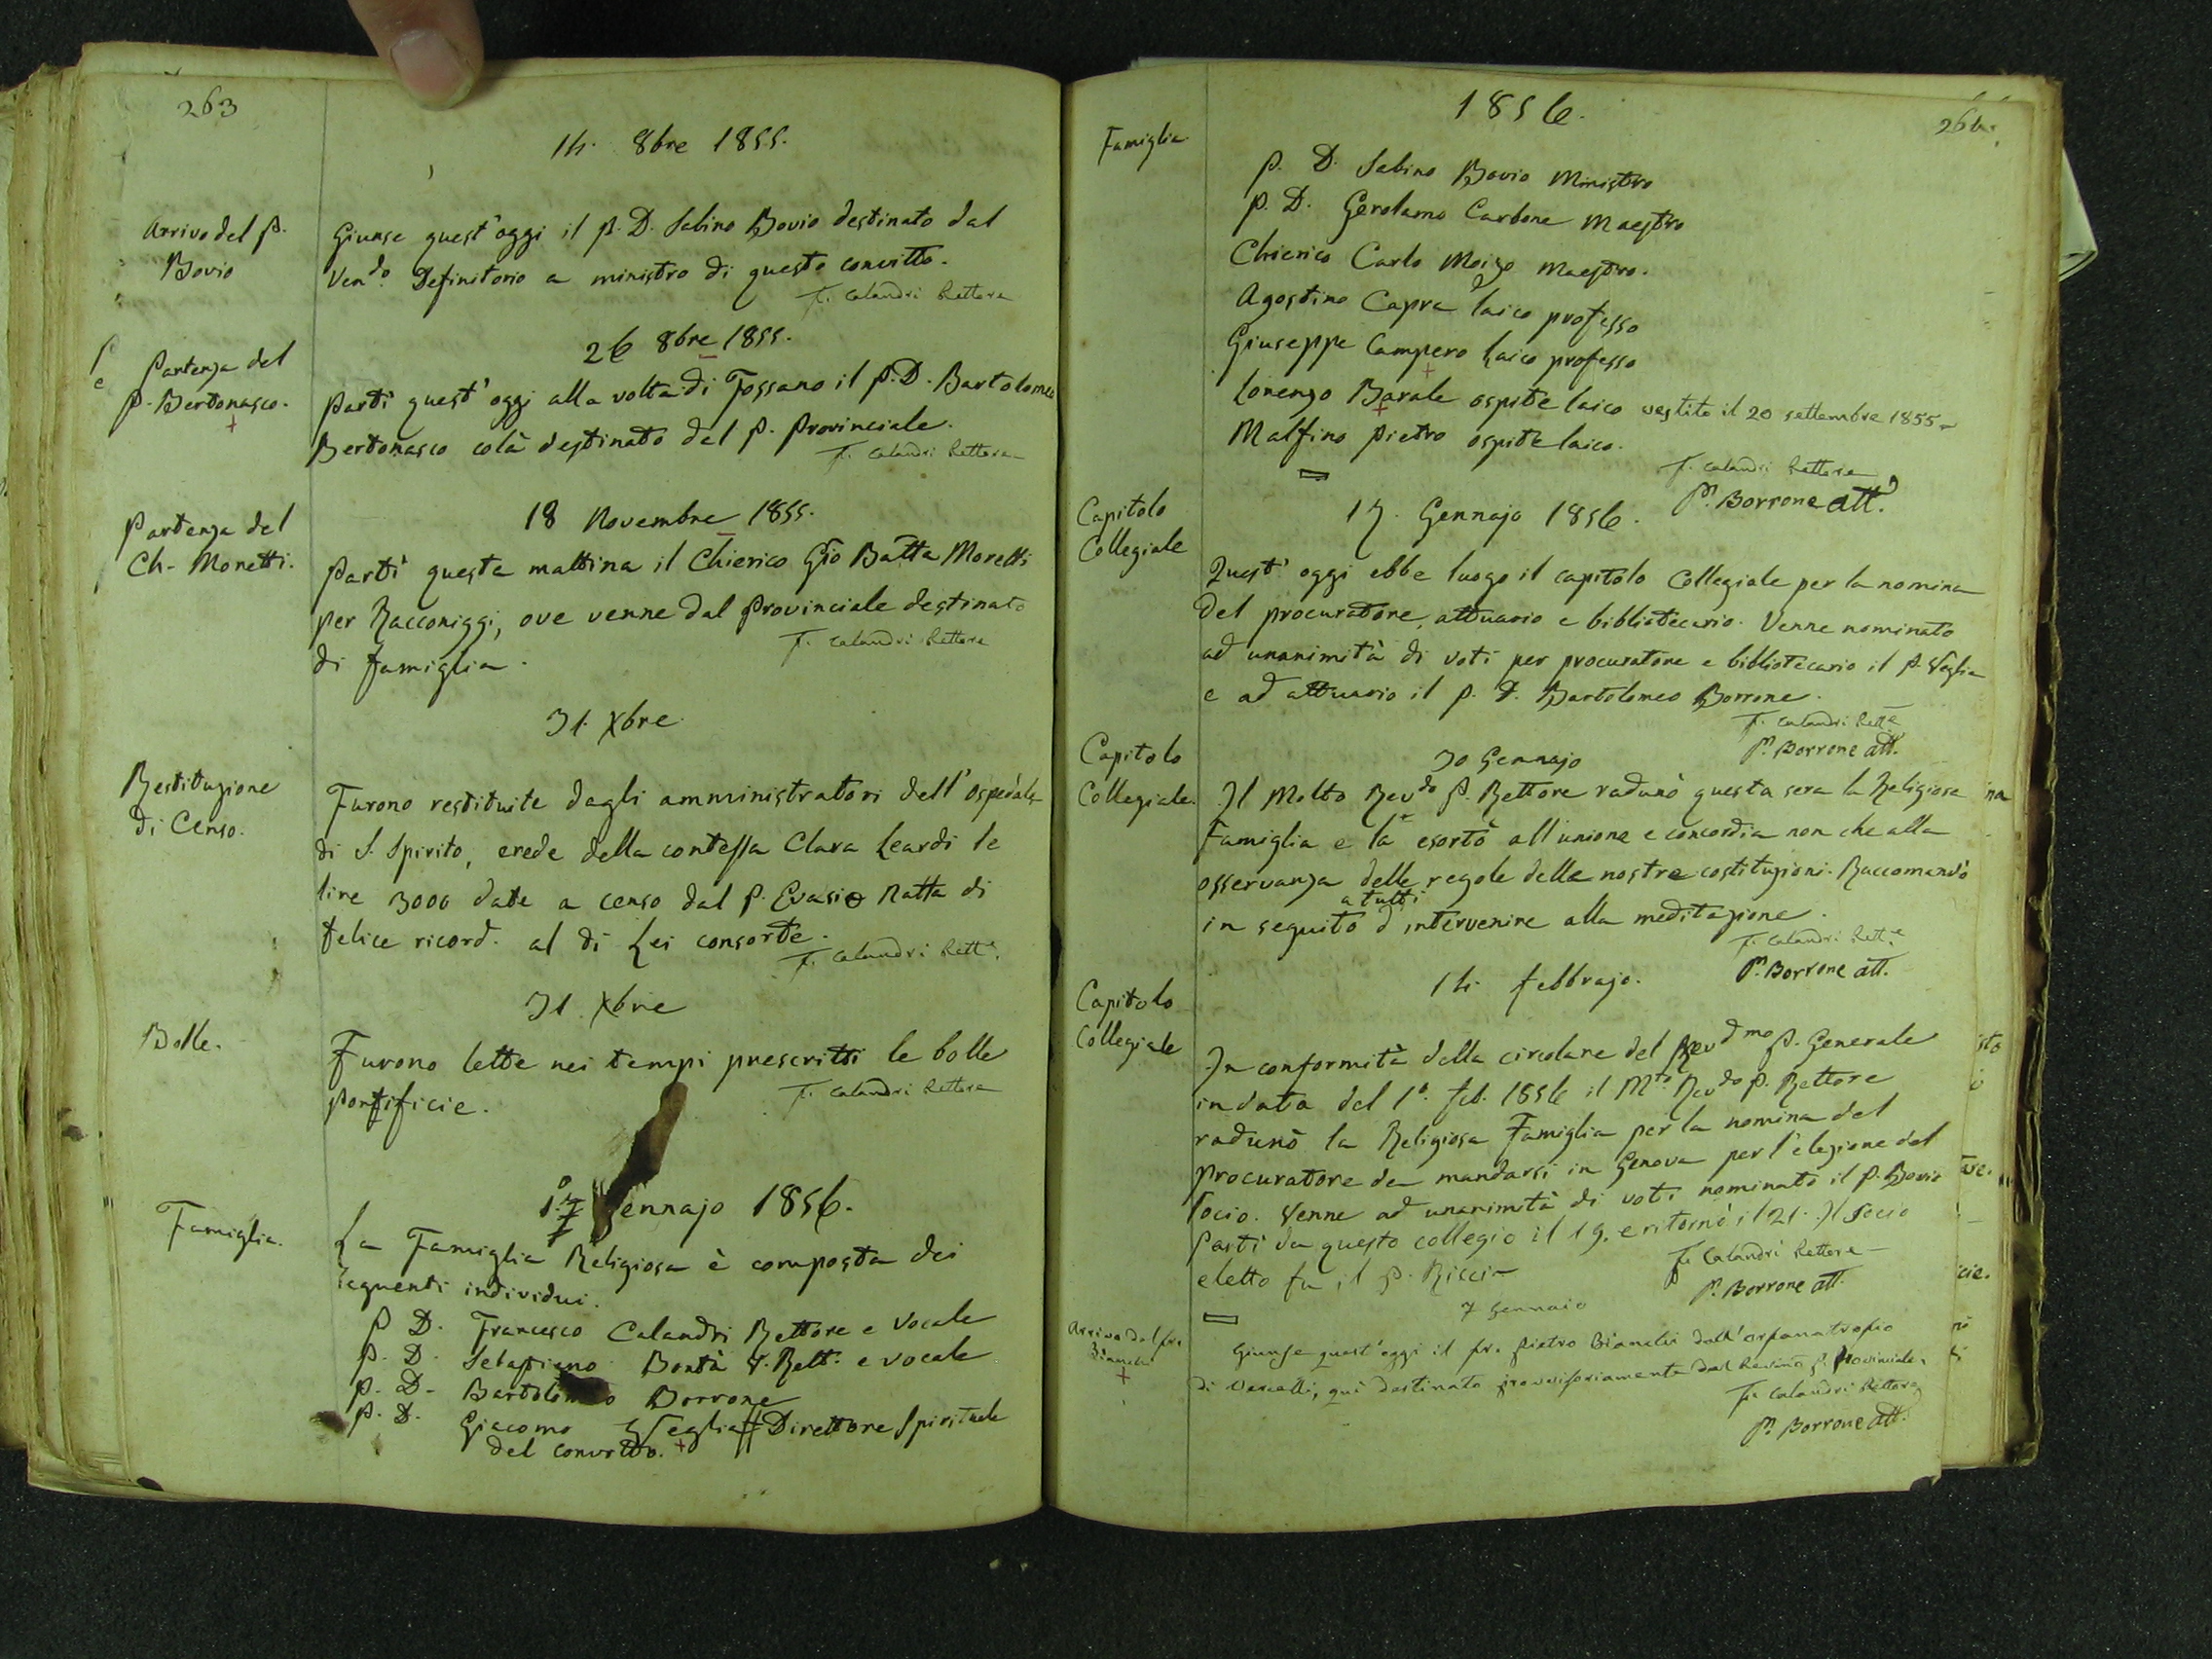 263
14. 8bre 1855.
Arrivo del P.
Bovio
Giunse quest'oggi il P. D. Sabino Bovio destinato dal
Ven.do Definitorio a ministro di questo convitto.
F. Calandri Rettore
26 8bre 1855.
Partenza del
P. Bertonasco.
Partì quest'oggi alla volta di Fossano il P. D. Bartolomeo
Bertonasco colà destinato dal P. Provinciale.
F. Calandri Rettore
18 Novembre 1855.
Partenza del
Ch. Moretti.
Partì questa mattina il Chierico Gio Batta Moretti
per Racconiggi, ove venne dal Provinciale destinato
di famiglia.
F. Calandri Rettore
31. Xbre
Restituzione
di Censo.
Furono restituite dagli amministratori dell'ospedale
di S. Spirito, erede della contessa Clara Leardi le
lire 3000 date a censo dal P. Evasio Natta di
felice ricord. al di Lei consorte.
F. Calandri Rett.e
31. Xbre
Bolle.
Furono lette nei tempi prescritti le bolle
pontificie.
F. Calandri Rettore
1.° Gennajo 1856.
Famiglia.
La Famiglia Religiosa è composta dei
seguenti individui.
P. D. Francesco Calandri Rettore e Vocale
P. D. Sebastiano Bontà V. Rett. e vocale
P. D. Bartolomeo Borrone
P. D. Giacomo Veglia # Direttore Spirituale
del convitto.
1856.
264.
Famiglia
P. D. Sabino Bovio Ministro
P. D. Gerolamo Carbone Maestro
Chierico Carlo Moizo Maestro.
Agostino Capra laico professo
Giuseppe Campero Laico professo
Lorenzo Barale ospite laico vestito il 20 settembre 1855
Malfino Pietro ospite laico.
F. Calandri Rettore
P. Borrone att.
Capitolo
Collegiale
17. Gennajo 1856.
Quest'oggi ebbe luogo il capitolo Collegiale per la nomina
del procuratore, attuario e bibliotecario. Venne nominato
ad unanimità di voti per procuratore e bibliotecario il P. Veglia
e ad attuario il P. D. Bartolomeo Borrone.
F. Calandri Rett.e
P. Borrone att.
30 Gennajo
Capitolo
Collegiale.
Il Molto Rev.do P. Rettore radunò questa sera la Religiosa
Famiglia e la esortò all'unione e concordia non che alla
osservanza delle regole delle nostre costituzioni. Raccomandò
a tutti
in seguito d'intervenire alla meditazione.
F. Calandri Rett.e
P. Borrone att.
14. febbrajo.
Capitolo
Collegiale
In conformità della circolare del Rev.dmo P. Generale
in data del 1°. feb. 1856 il M.to Rev.do P. Rettore
radunò la Religiosa Famiglia per la nomina del
procuratore da mandarsi in Genova per l'elezione del
Socio. Venne ad unanimità di voti nominato il P. Bovio
Partì da questo collegio il 19. e ritornò il 21. Il Socio
eletto fu il P. Ricci
F. Calandri Rettore
P. Borrone att.
7 Gennaio
Arrivo del fr.
Bianchi
Giunse quest'oggi il fr. Pietro Bianchi dall'orfanatrofio
di Vercelli, qui destinato provvisoriamente dal P. Provinciale.
F. Calandri Rettore
P. Borrone att.